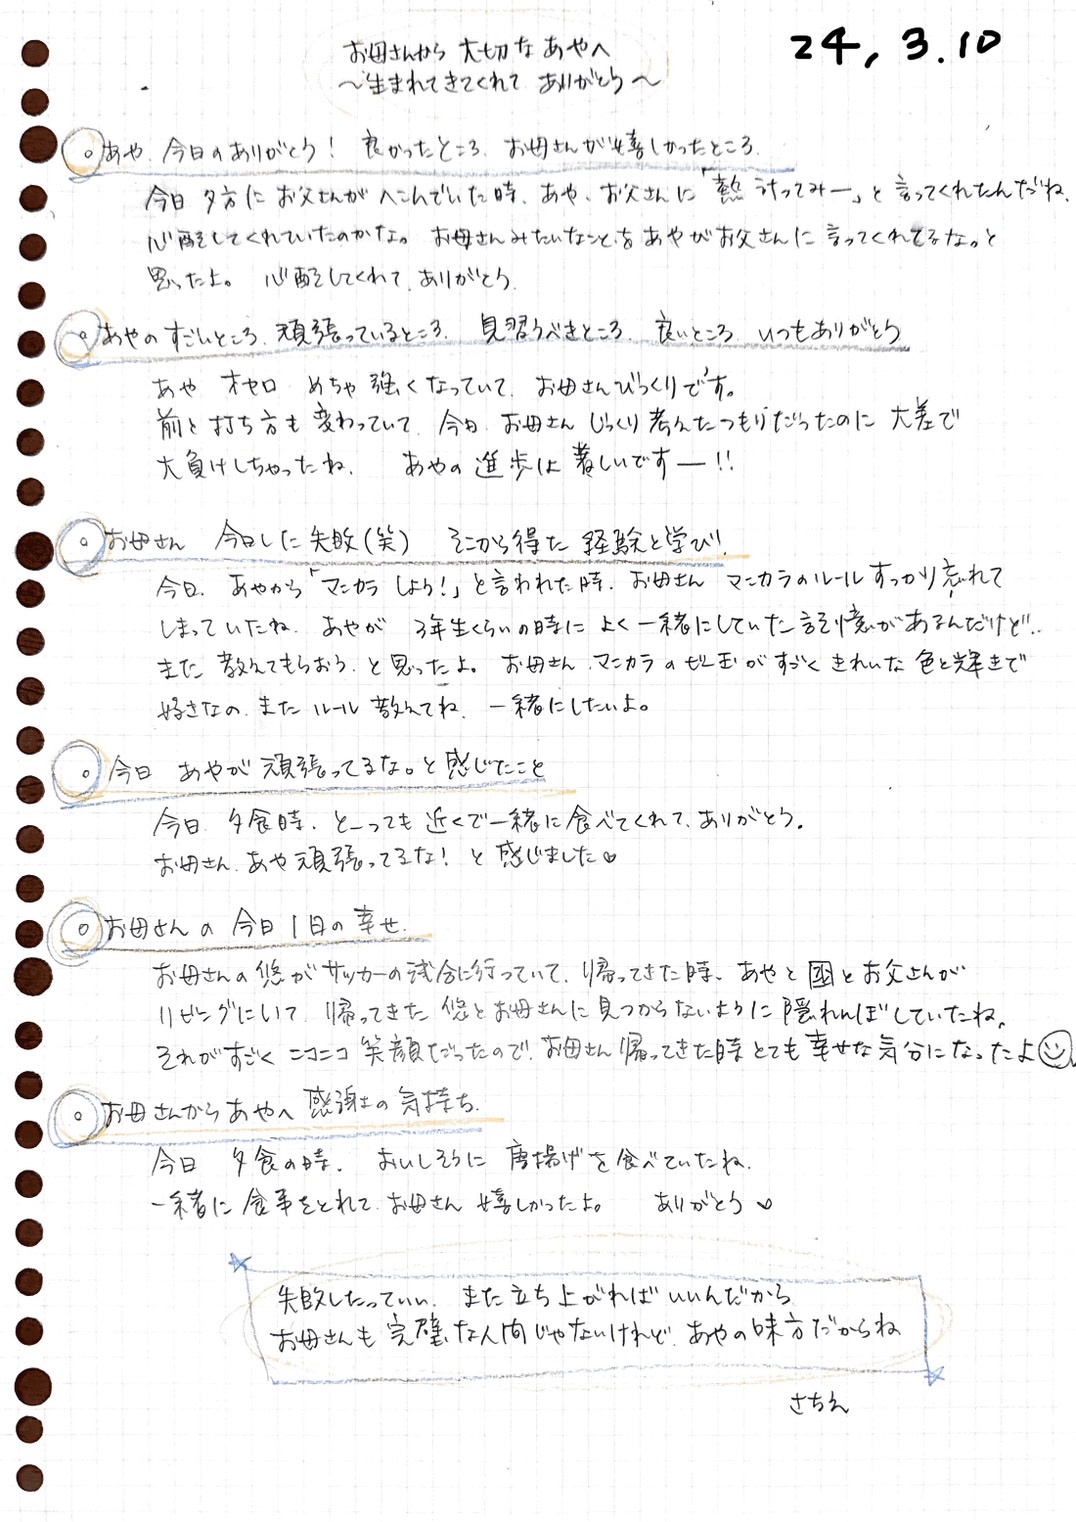 24, 3.10
お母さんから 大切な あやへ
〜生まれてきてくれて ありがとう〜
あや、今日のありがとう! 良かったところ、お母さんが嬉しかったところ
今日 夕方に お父さんが へこんでいた時、あや、お父さんに「熱 計ってみー」と 言ってくれたんだね、
心配してくれていたのかな。 お母さんみたいなことを あやがお父さんに 言ってくれてるな。と
思ったよ。 心配してくれて、ありがとう。
あやの すごいところ、頑張っているところ、見習うべきところ、良いところ、いつもありがとう
あや オセロ めちゃ 強くなっていて、お母さんびっくりです。
前と 打ち方も 変わっていて、今日、お母さん じっくり 考えたつもりだったのに 大差で
大負けしちゃったね、 あやの 進歩は 著しいですー!!
お母さん 今日した 失敗(笑) そこから得た 経験と学び!
今日、あやから「マンカラ しよう!」と言われた時、お母さん マンカラのルール すっかり忘れて
しまっていたね、あやが 3年生くらいの時に よく 一緒にしていた記憶があるんだけど..
また 教えてもらおう、と思ったよ。お母さん、マンカラの ビー玉が すごく きれいな 色と輝きで
好きなの、また ルール 教えてね、一緒にしたいよ。
今日 あやが 頑張ってるな。と 感じたこと
今日 夕食時、とーっても 近くで 一緒に食べてくれて、ありがとう。
お母さん、あや 頑張ってるな! と 感じました♡
お母さんの 今日1日の 幸せ
お母さんの 悠が サッカーの試合に行っていて、帰ってきた時、あやと 国と お父さんが
リビングにいて、帰ってきた 悠と お母さんに 見つからないように 隠れんぼしていたね、
それがすごく ニコニコ 笑顔だったので、お母さん 帰ってきた時 とても 幸せな気分になったよ
お母さんから あやへ 感謝の 気持ち
今日 夕食の時、おいしそうに 唐揚げを 食べていたね、
一緒に 食事をとれて、お母さん 嬉しかったよ。 ありがとう♡
失敗したっていい、また立ち上がれば いいんだから
お母さんも 完璧な人間じゃないけれど、あやの味方だからね
さちえ